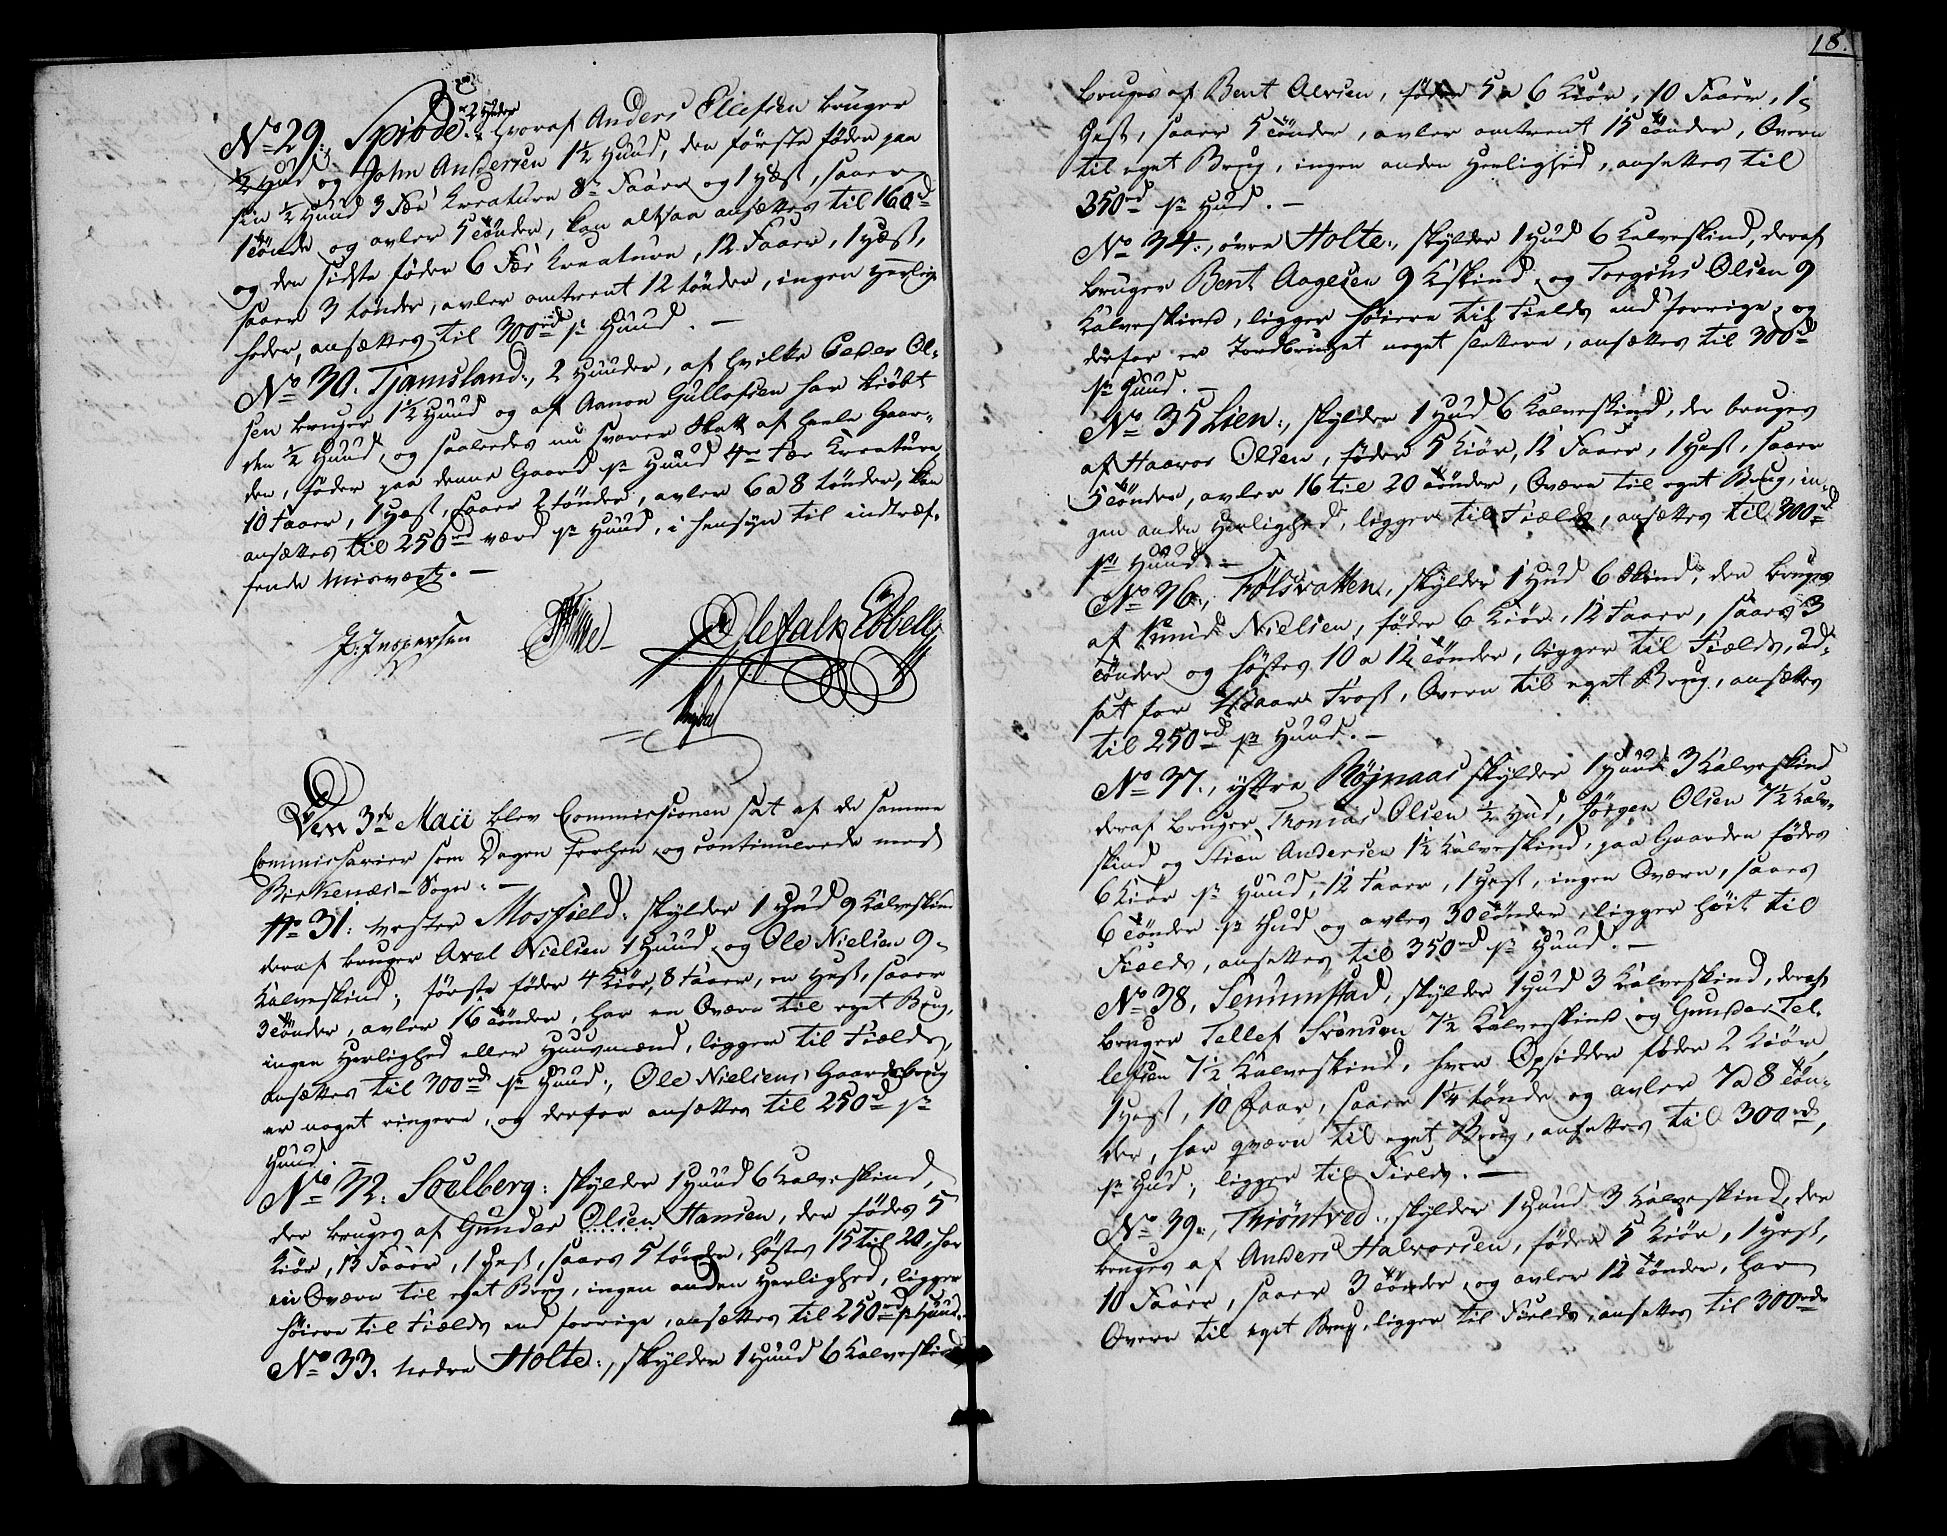 No 29, Spiøde, 2 Huder hvoraf Anders Ellefsen bruger
½ Hud og John Andersen 1½ Huud, den første føder paa
sin ½ Huud 3 Fæ Kreature 8te Faar og 1 Hæst, saaer
1 Tønde og avler 5 Tønder, kan altsaa ansættes til 160rd
og den sidste føder 6 Fæ Kreature, 12 Faar, 1 Hæst,
saaer 3 Tønder, avler omtrent 12 Tønder, ingen Herlig-
heder, ansættes til 300rd pr Huud. –
No 30. Tjamsland, 2 Huuder, af hvilke Peder Ol-
sen bruger 1½ Huud og af Aanon Gullofsen har kiøbt
den ½ Huud, og saaledes nu svarer Skatt af heele Gaar-
den, føder paa denne Gaard pr Huud 4re Fæ Kreature
10 Faar, 1 Hæst, saaer 2 Tønder, avler 6 a 8 Tønder, kan
ansættes til 250rd værd pr Huud, i hensyn til indtræf-
fende Misvæxt. –
J. Jespersen Ole Falk Ebbell
Den 3de Maii blev Commissionen sat af de samme
Commissarier som Dagen forhen og continuerede med
Birkenæs Sogn. –
No 31: vester Mosfield: skylder 1 Hud 9 Kalveskind
deraf bruger Axel Nielsen 1 Huud og Ole Nielsen 9
Kalveskind, første føder 4 Kiør, 8 Faar, en Hest, saaer
3 Tønder, avler 16 Tønder, har en Qværn til eget Brug,
ingen Herlighed eller Huusmænd, ligger til Fields,
ansættes til 300rd pr Huud, Ole Nielsens Gaardebrug
er noget ringere, og derfor ansættes til 250rd pr
Huud. –
No 32. Soelberg: skylder 1 Huud 6 Kalveskind,
der bruges af Gunder Olsen Hansen, der fødes 5
Kiør, 15 Faar, 1 Hest, saaes 5 tønder, høstes 15 til 20, har
en Qværn til eget Brug, ingen anden Herlighed, ligger
høiere til Fields end forrige, ansættes til 250rd pr Huud.
No 33. nedre Holte, skylder 1 Huud 6 Kalveskind
18.
bruges af Bent Alvsen, føder 5 a 6 Kiør, 10 Faar, 1
Hest, saaer 5 Tønder, avler omtrent 15 Tønder, Qværn
til eget Brug, ingen anden Herlighed, ansættes til
350rd pr Hud. –
No 34, øvre Holte, skylder 1 Hud 6 Kalveskind, deraf
bruger Bent Aagesen 9 Kskind og Torgius Olsen 9
Kalveskind, ligger høiere til Fields end forrige, og
derfor er Jordbruget noget slettere, ansættes til 300rd
pr Huud. –
No 35 Lien, skylder 1 Hud 6 Kalveskind, der bruges
af Haavor Olsen, føder 5 Kiør, 12 Faar, 1 Hest, saaer
5 Tønder, avler 16 til 20 Tønder, Qværn til eget Brug, in-
gen anden Herlighed, ligger til Fields, ansættes til 300rd
pr Huud. –
No 36, Følsvatten, skylder 1 Hud 6 Skind, der bruges
af Knud Nielsen, føder 6 Kiør, 12 Faar, saaes 3
Tønder og høstes 10 a 12 Tønder, ligger til Fields, ud-
sat for Frost, Qværn til eget Brug, ansættes
til 250rd pr Huud. –
No 37, yttre Røjnaas skylder 1 Huud 3 Kalveskind
deraf bruger Thomas Olsen ½ Hud, Jørgen Olsen 7½ Kalv-
skind og Stian Andersen 1½ Kalveskind, paa Gaarden fødes
6 Kiør pr Huud, 12 Faar, 1 Hest, ingen Qværn, saaes
6 Tønder pr Hud og avles 30 Tønder, ligger høit til
Fields, ansættes til 350rd pr Huud. –
No 38, Senumstad, skylder 1 Hud 3 Kalveskind, deraf
bruger Tellef Svensen 7½ Kalveskind og Gunder Tel-
lefsen 7½ Kalveskind, hver Opsidder føder 2 Kiør,
1 Hest, 10 Faar, saaer 1¼ Tønde og avler 7 a 8 Tøn-
der, har qværn til eget Brug, ansættes til 300rd,
pr Hud, ligger til Fields. –
No 39, Thiøntved, skylder 1 Huud 3 Kalveskind, der
bruges af Anders Halvorsen, føder 5 Kiør, 1 Hest,
10 Faar, saaer 3 Tønder og avler 12 Tønder, har
Qværn til eget Brug, ligger til Fields, ansættes til 300rd